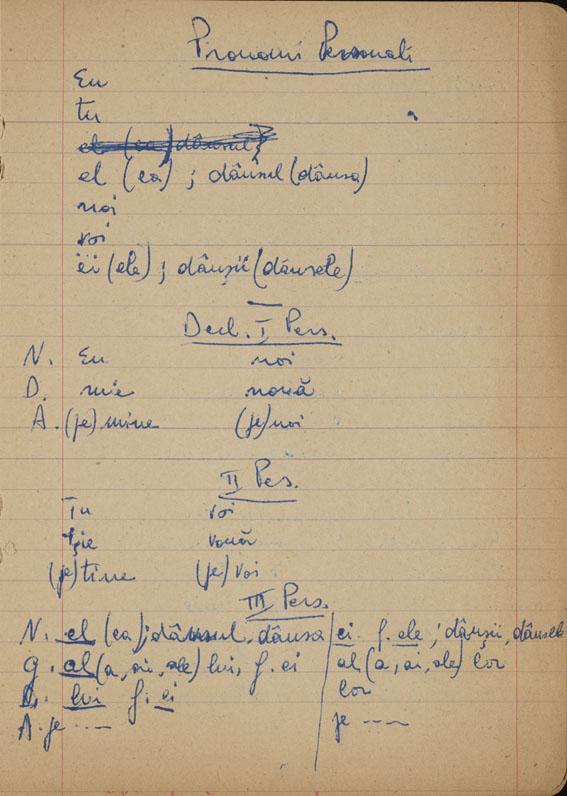 Pronomi Personali
Eu
tu
el (ea) dânsul
el (ea) ; dânsul (dânsa)
noi
voi
ei (ele) ; dânşii (dânsele)
Decl. I Pers.
N. Eu noi
D. mie nouă
A. (pe) mine (pe) noi
II Pers.
Tu voi
ţie vouă
(pe) tine (pe) voi
III Pers.
N. el (ea); dânsul, dânsa ei f. ele ; dânşii, dânsele
G. al (a, ai, ale) lui, f. ei al (a, ai, ale) lor
D. lui f. ei lor
A. pe ---- pe ----